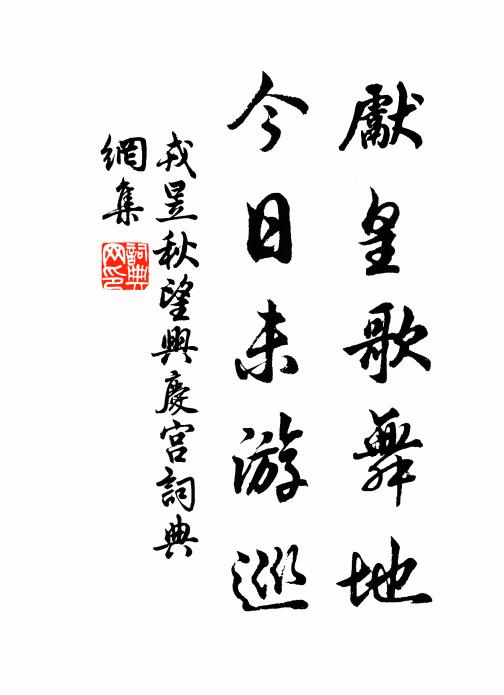 獻皇歌舞地
今日未游巡
戎昱秋望興慶宫詞典
網集
詞典
网印